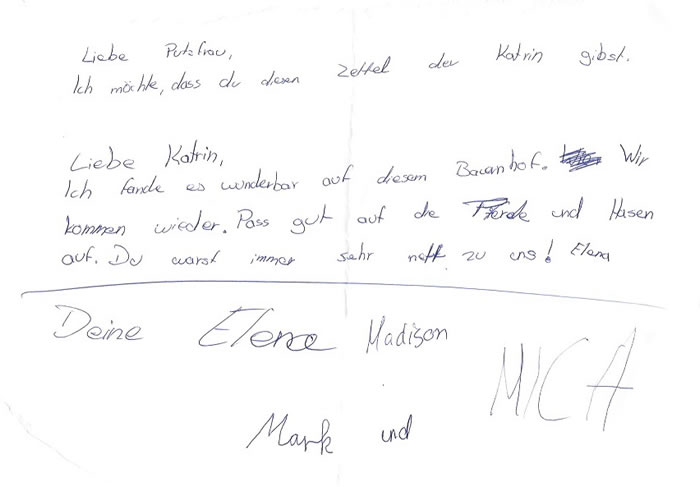 Liebe Putzfrau,
Ich möchte, dass du diesen Zettel der Katrin gibst.
Liebe Katrin,
Ich fande es wunderbar auf diesem Bauanhof. Wir
kommen wieder. Pass gut auf die Pferde und Hasen
auf. Du warst immer sehr nett zu uns! Elena
Deine Elena Madison
MICA
Mark und